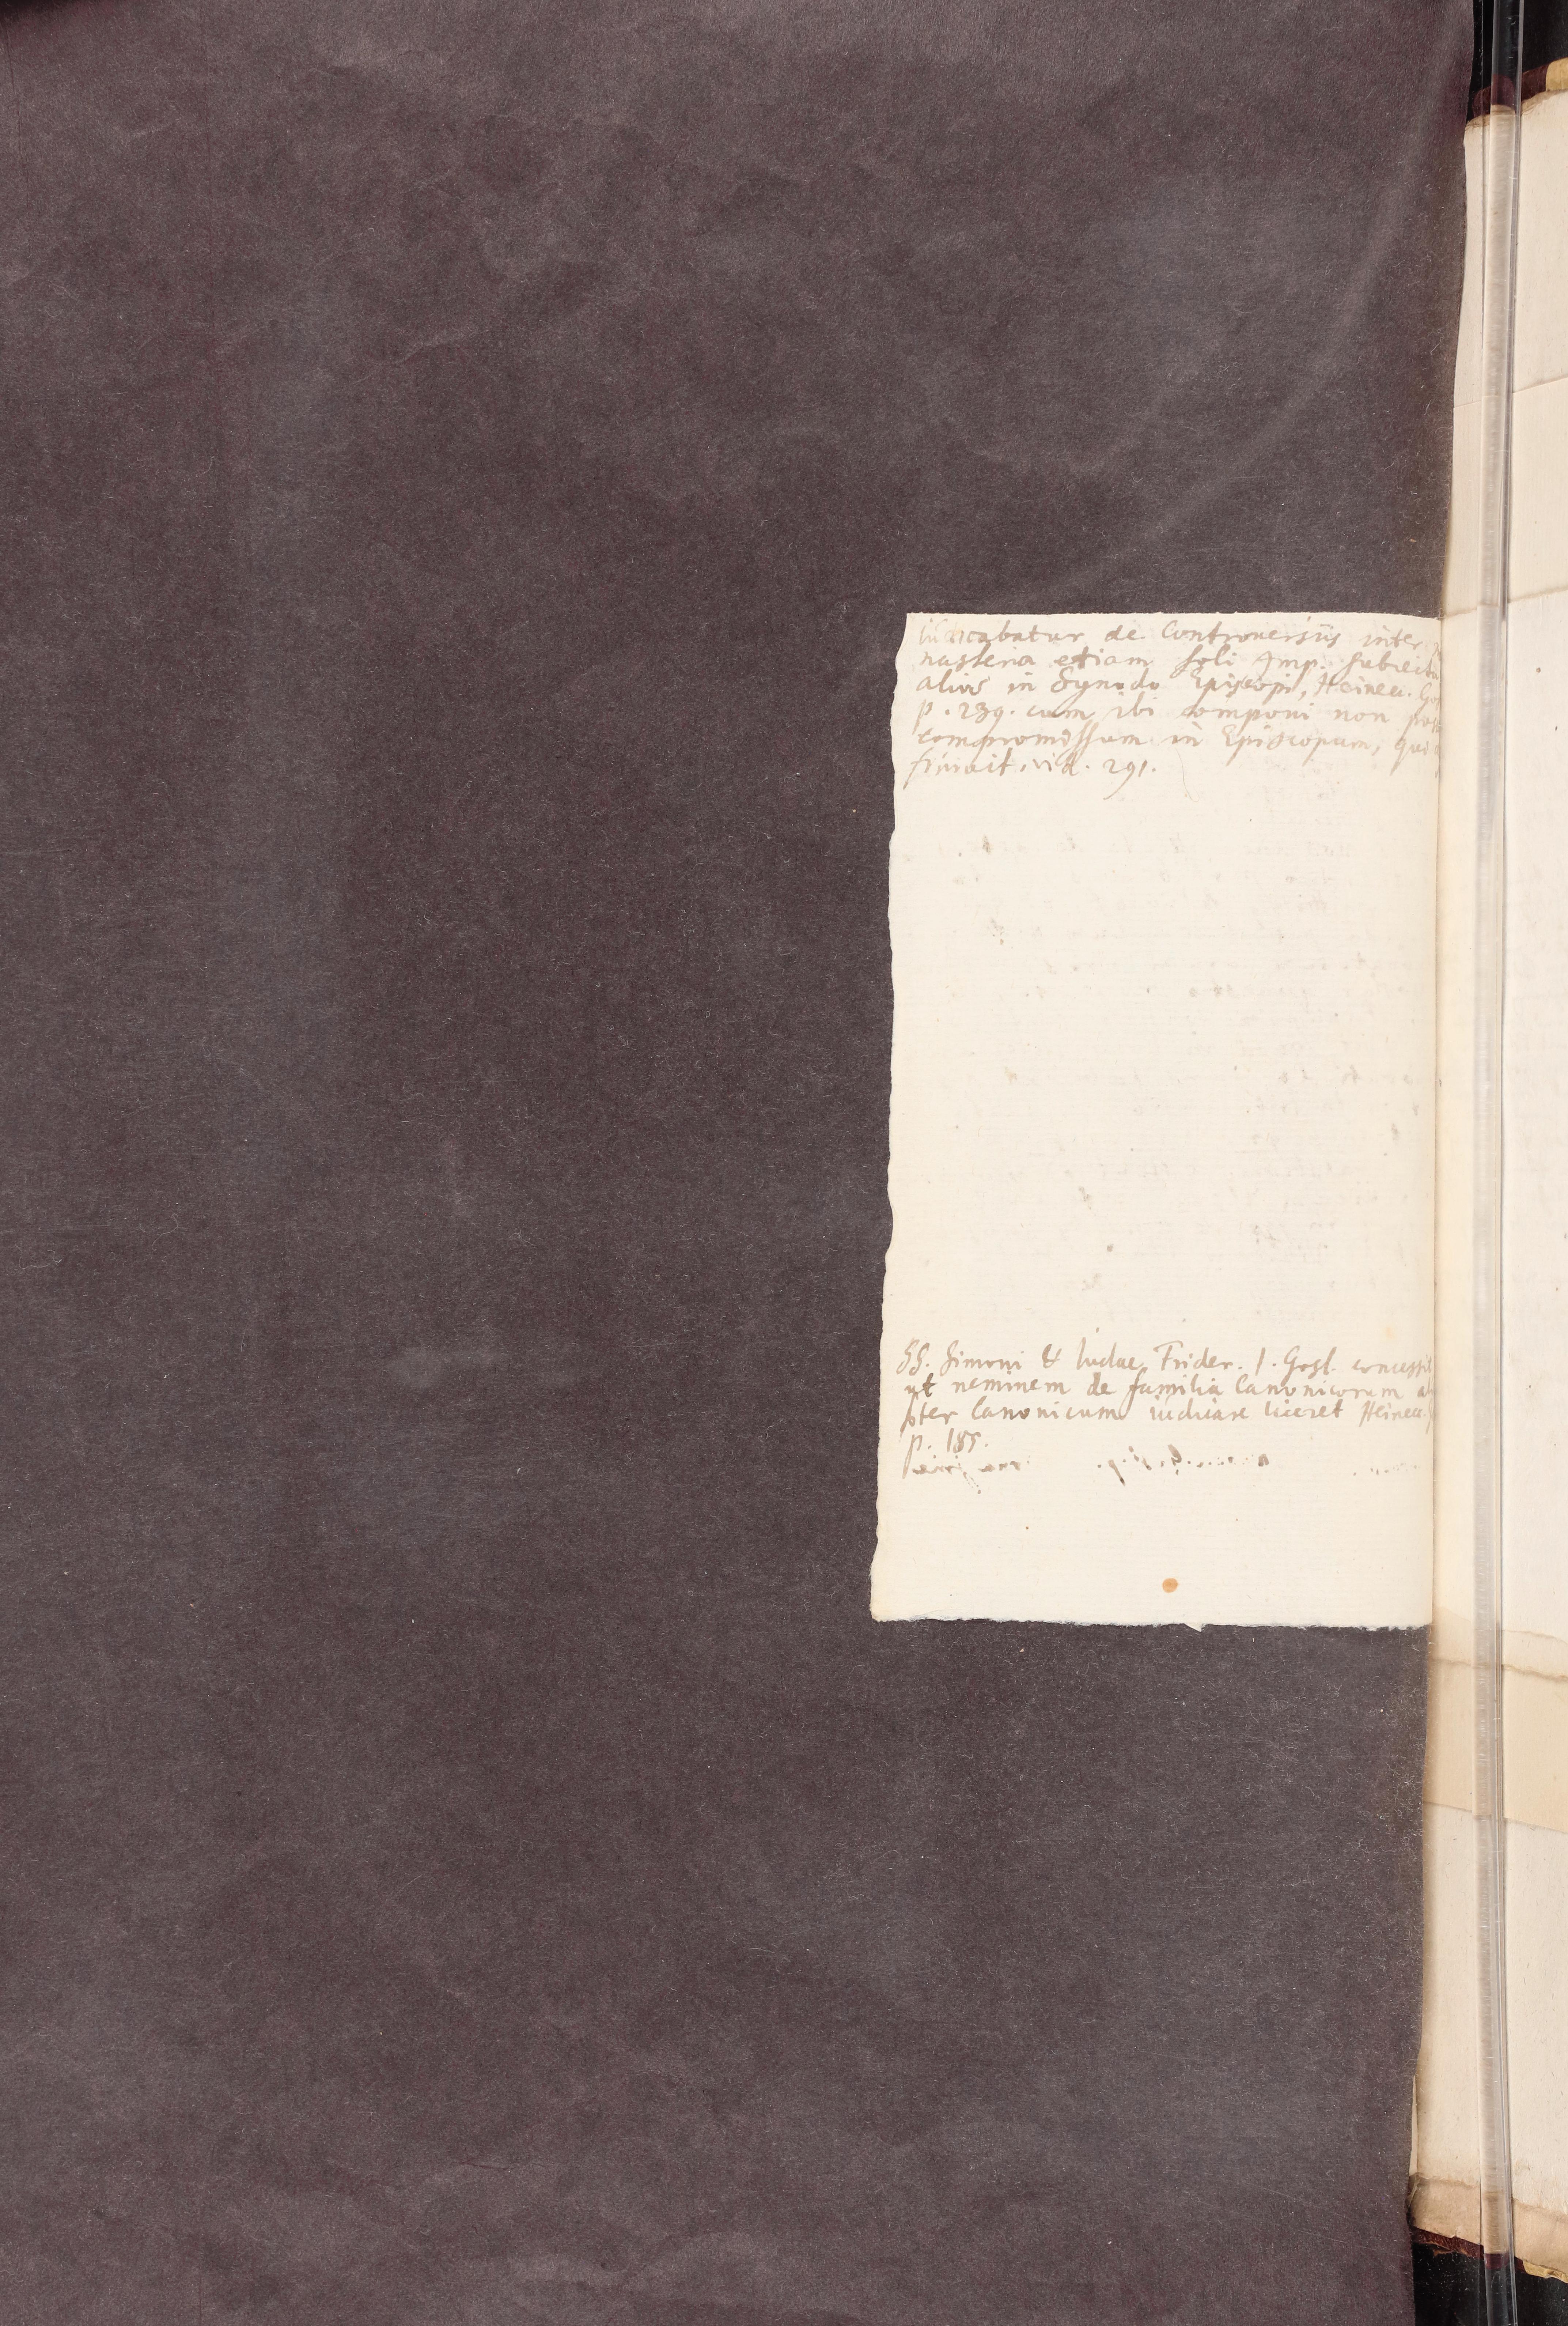 iudicabatur de controversiis inter
nasteria etiam soli Imp. subiecta
alios in Synodo Episcopi, Heinecc. Gos
p. 239. cum ibi componi non pot
compromissum in Episcopum, qui
finivit. vid. 291.
SS. Simoni & Iudae Frider. I. Gosl. concessit
ut neminem de familia Canonicorum al
pter Canonicum iudicare liceret Heinecc.
p. 185.